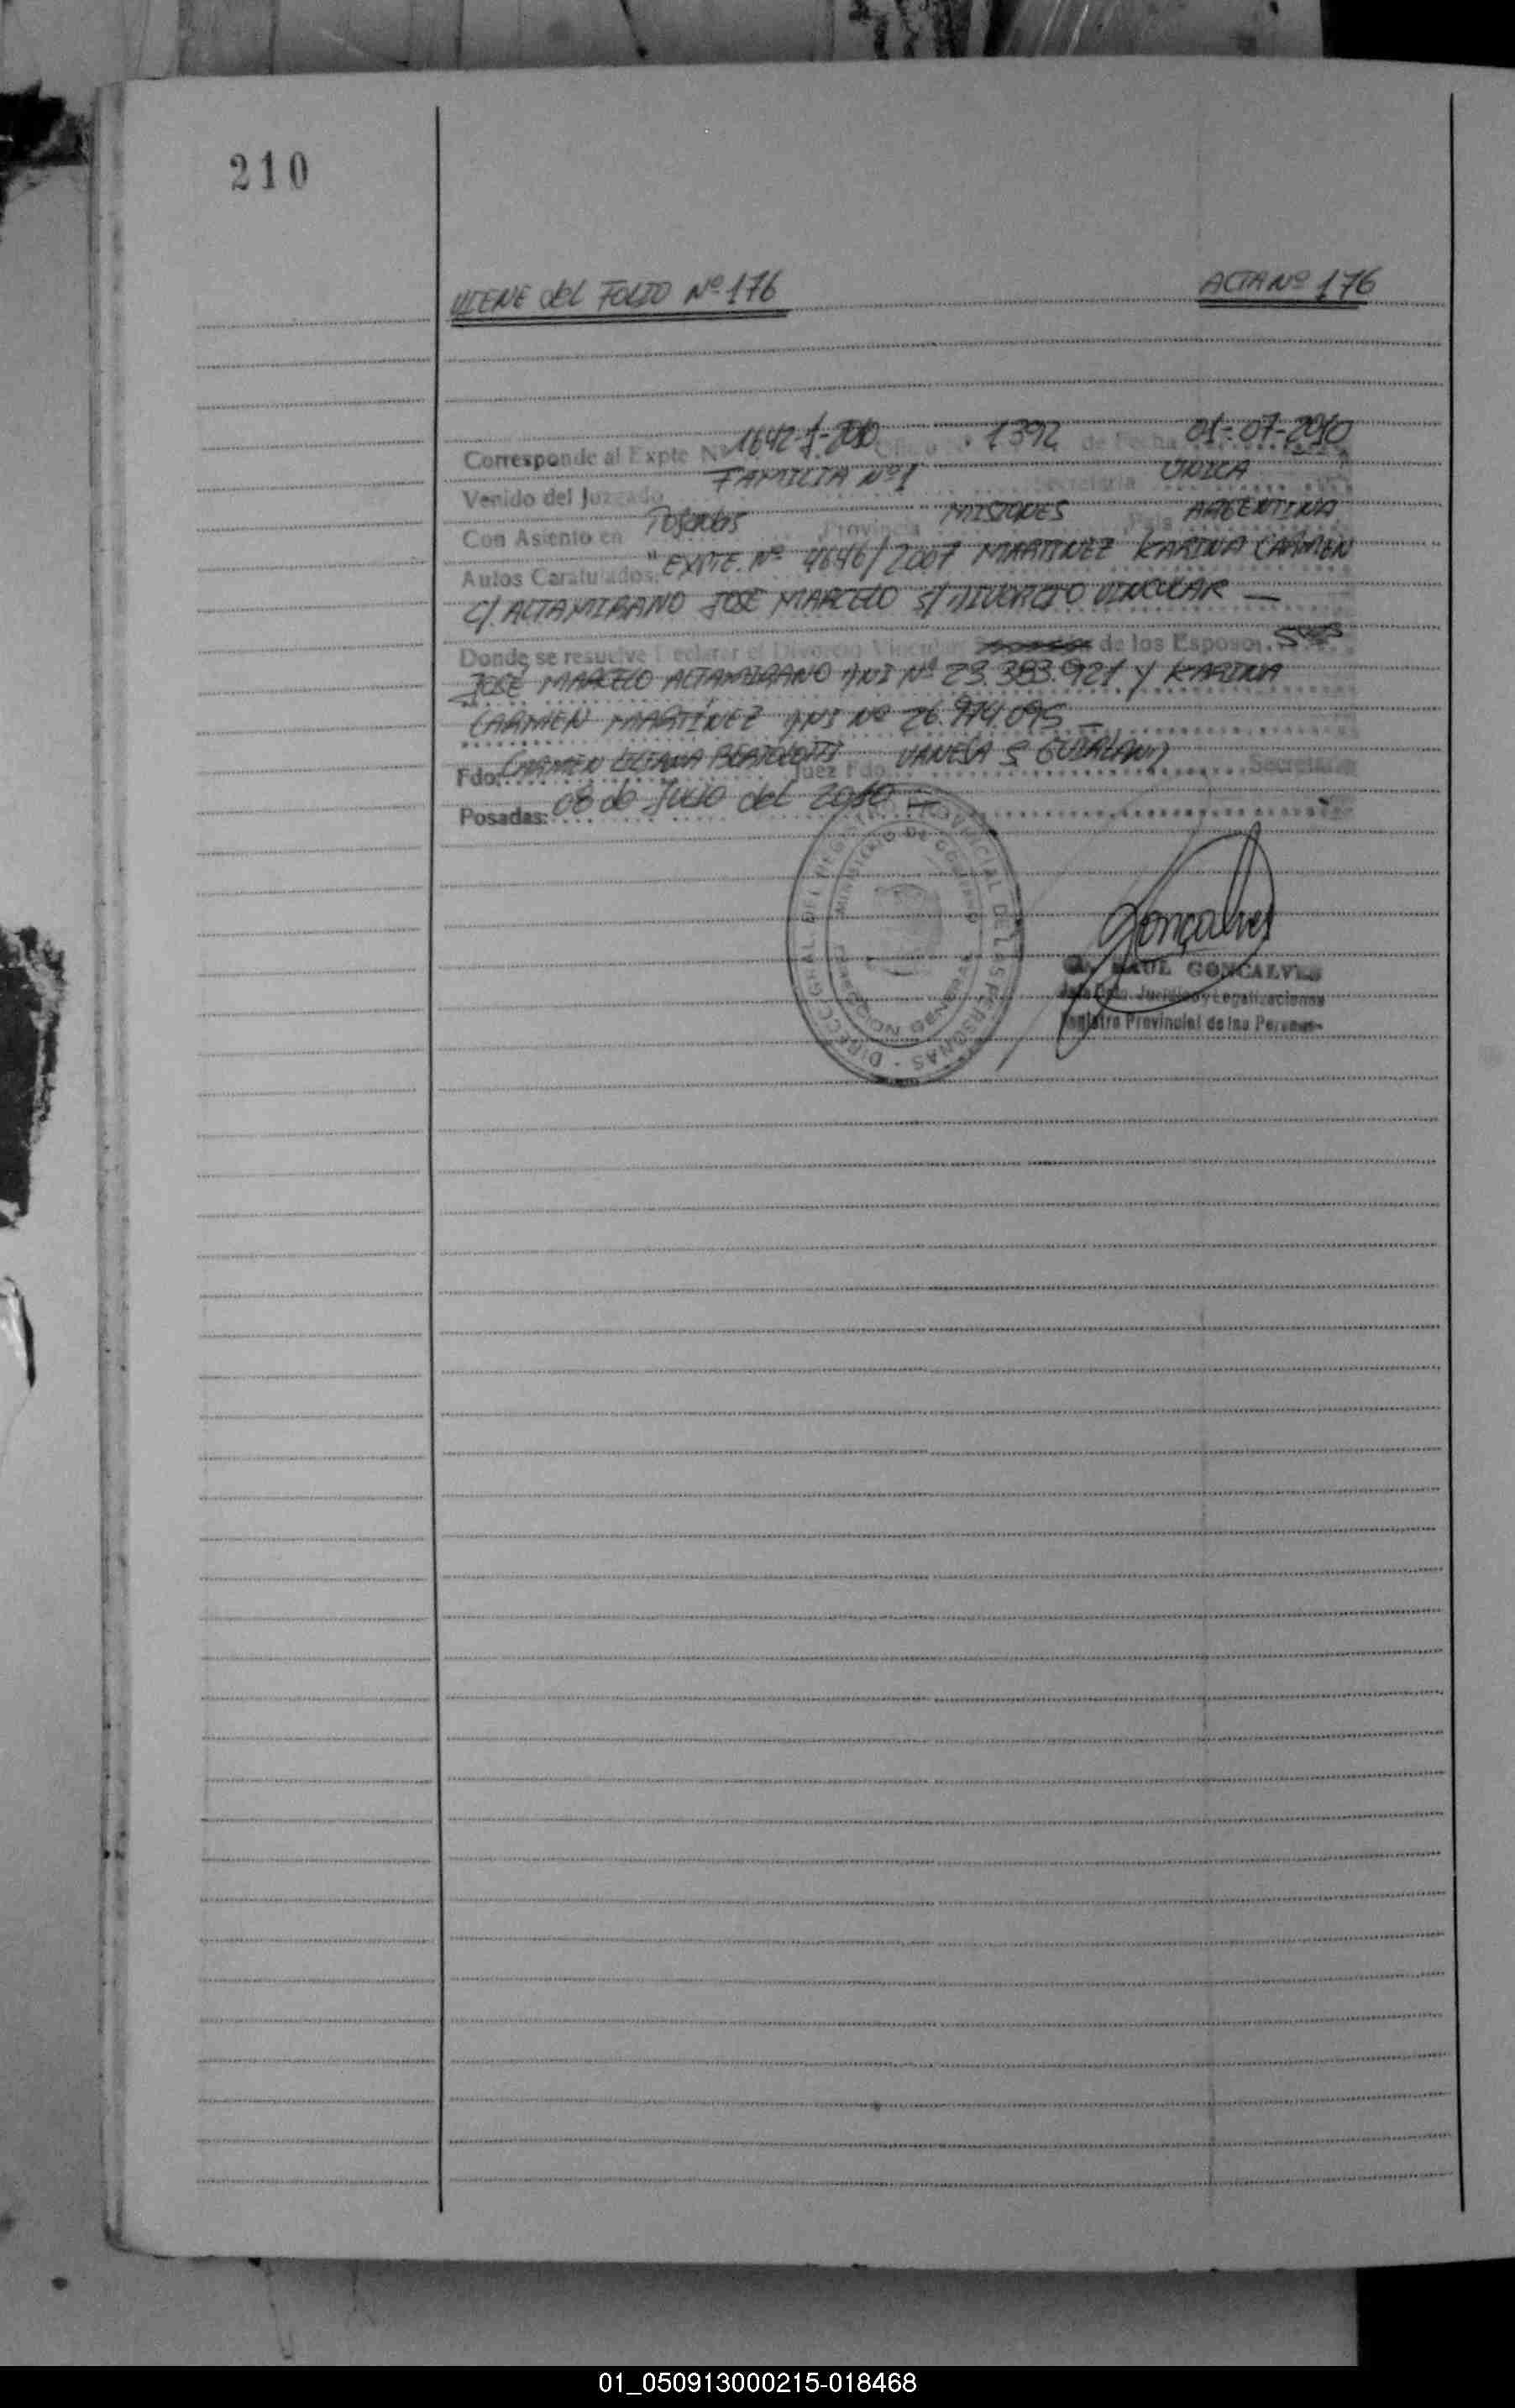 210
VIENE del FOLIO Nº 176 ACTA Nº 176
Corresponde al Expte Nº 1642-J-2010 Oficio 1392 de Fecha 01-07-2010
Venido del Juzgado FAMILIA Nº1 Secretaria UNICA
Con Asiento en Posadas Provincia MISIONES Pais ARGENTINA
Autos Caratulados: "EXPTE. Nº 4646/2007 MARTINEZ KARINA CARMEN
C/ ALTAMIRANO JOSE MARCELO S/ DIVORCIO VINCULAR —
Donde se resuelve Declarar el Divorcio Vincular de los Esposos
JOSÉ MARCELO ALTAMIRANO DNI Nº 23.383.921 Y KARINA
CARMEN MARTÍNEZ DNI Nº 26.974.095 —
Fdo: CARMEN LILIANA Juez Fdo. VANESA S Secretaria
Posadas: 08 de Julio del 2010 —
DIRECC. GRAL. DEL REGISTRO PROVINCIAL DE LAS PERSONAS
MINISTERIO DE GOBIERNO
Gonçalves
RAUL GONCALVES
Jefe Dpto. Juridico y Legalizaciones
Registro Provincial de las Personas
01_050913000215-018468